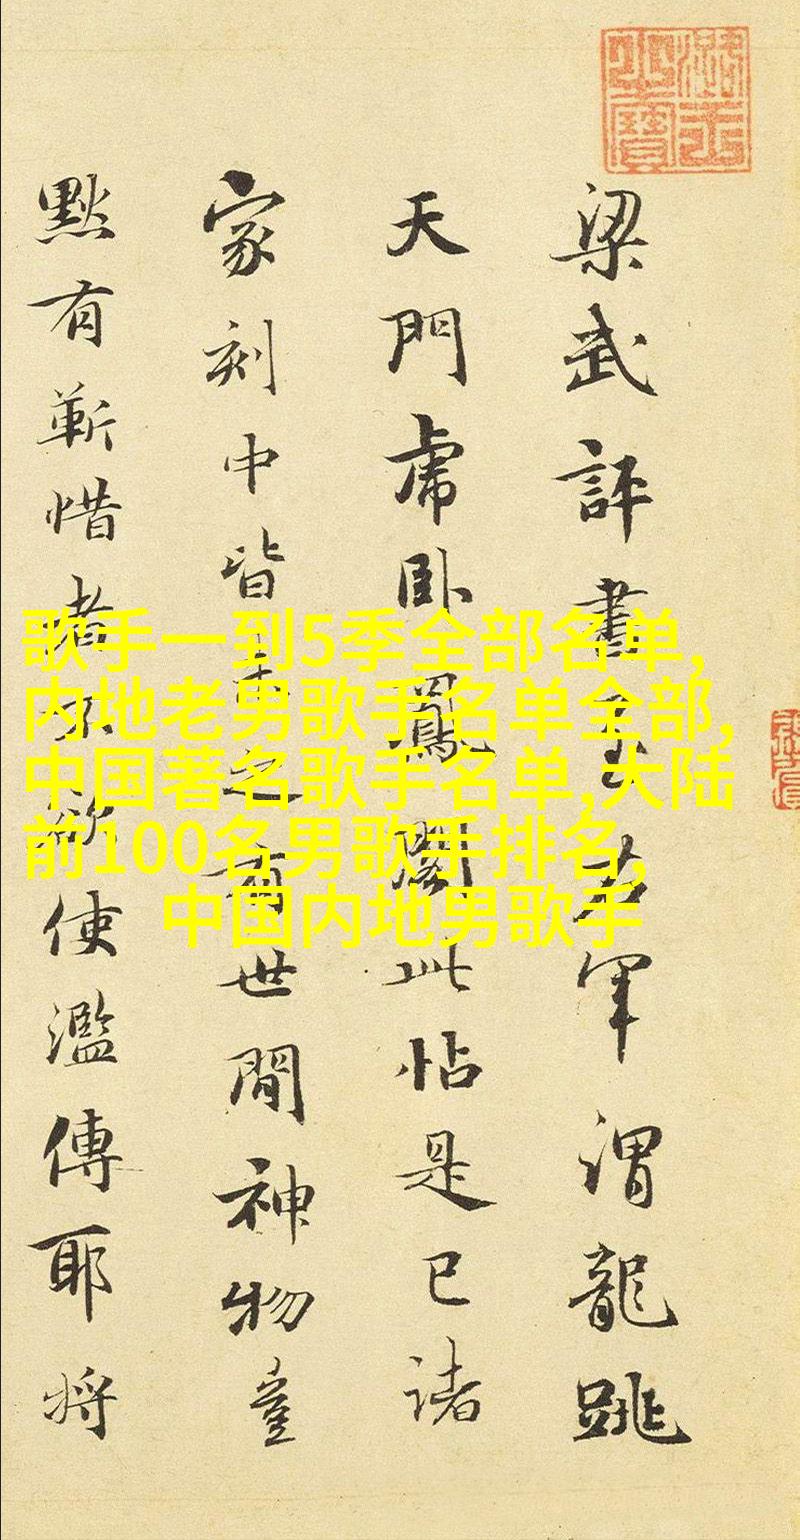 梁武評書至右軍謂龍跳
天門虎卧鳳閣此帖是已諸
家刻中皆有之有世間神物
黙有靳惜者不欲使濫傳耶將
歌手一到5季全部名单,
内地老男歌手名单全部,
中国著名歌手名单,大陆
前100名男歌手排名,
中国内地男歌手